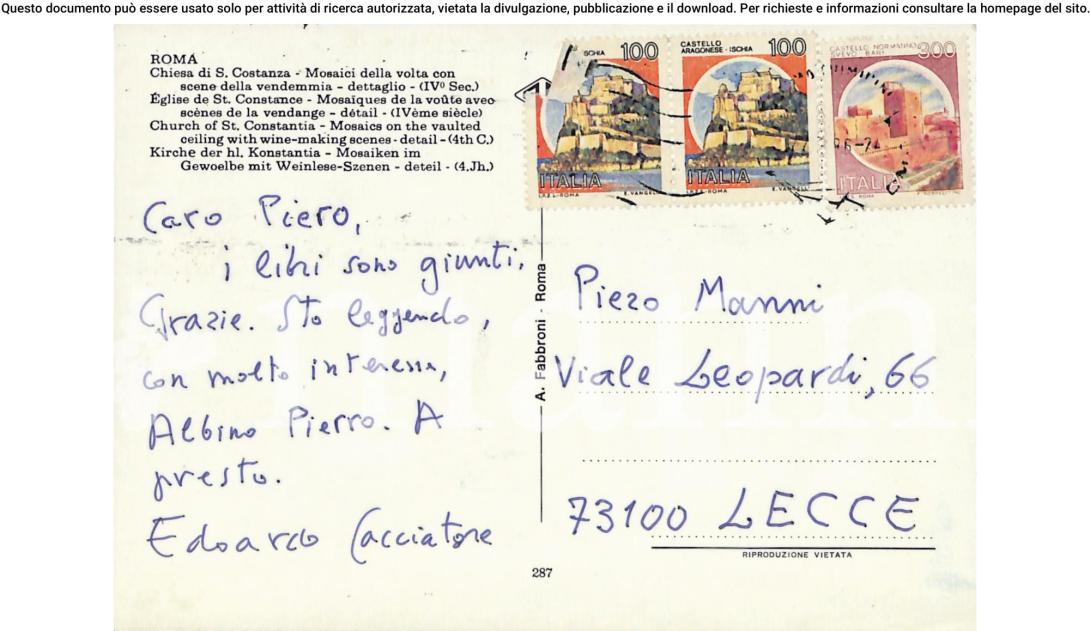 Questo documento può essere usato solo per attività di ricerca autorizzata, vietata la divulgazione, pubblicazione e il download. Per richieste e informazioni consultare la homepage del sito.
ROMA
Chiesa di S. Costanza - Mosaici della volta con
scene della vendemmia - dettaglio - (IVº Sec.)
Église de St. Constance - Mosaïques de la voûte avec
scènes de la vendange - détail - (IVème siècle)
Church of St. Constantia - Mosaics on the vaulted
ceiling with wine-making scenes - detail - (4th C.)
Kirche der hl. Konstantia - Mosaiken im
Gewoelbe mit Weinlese-Szenen - deteil - (4.Jh.)
SCHIA 100
ITALIA
I.P.Z.S.-ROMA E. VANGELLI
CASTELLO
ARAGONESE - ISCHIA 100
ITALIA
I.P.Z.S.-ROMA E. VANGELLI
CASTELLO NORMANNO
SVEVO - BARI 300
ITALIA
ROMA
Caro Piero,
i libri sono giunti.
Grazie. Sto leggendo,
con molto interesse,
Albino Pierro. A
presto.
Edoardo Cacciatore
A. Fabbroni - Roma
Piero Manni
Viale Leopardi, 66
73100 LECCE
RIPRODUZIONE VIETATA
287